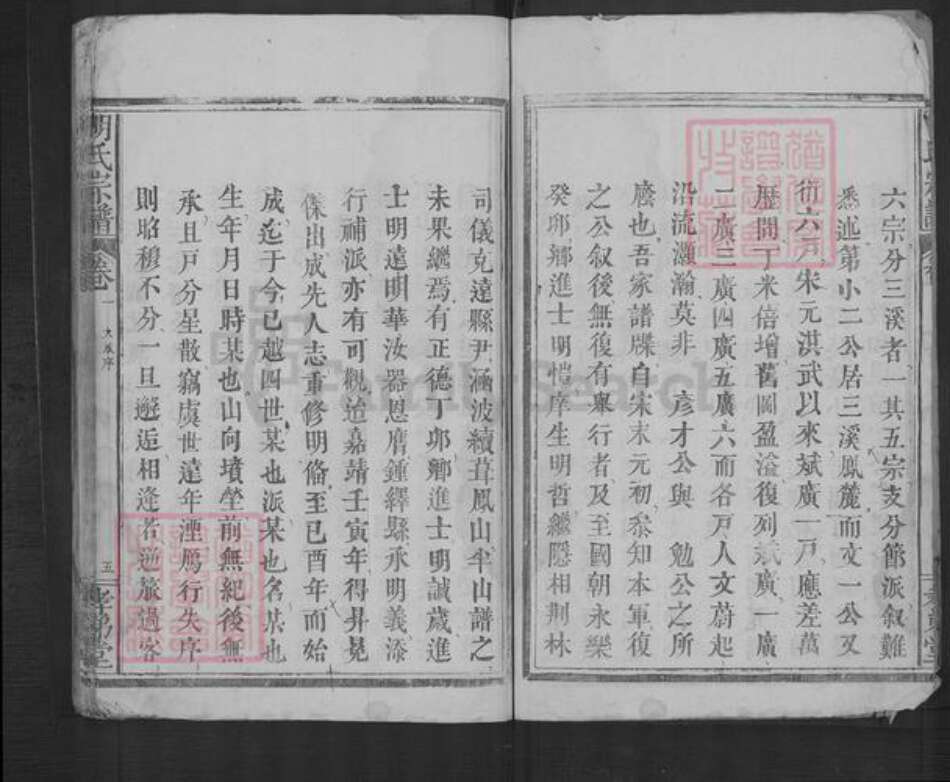 六宗分三溪者一其五宗支分節派叙難
悉述第小二公居三溪鳳麓而文一公又
衍六 宋元洪武以來斌廣一戸應差萬
歷間丁米倍增舊圖盈溢復列斌廣一廣
二廣三廣四廣五廣六而各戸人文蔚起
沿流灝瀚莫非 彦才公與 勉公之所
廕也吾家譜牒自宋末元初叅知本軍復
之公叙後無復有舉行者及至國朝永樂
癸邜鄉進士明愷庠生明哲繼隱相荆林
司儀克達縣尹涵波續葺鳳山半山譜之
未果繼焉有正德丁邜鄉進士明誠歲進
士明遠明華汝器恩廕鍾繹縣承明義添
行補派亦有可觀迨嘉靖壬寅年得昇晃
傑出成先人志重修明俻至已酉年而始
成迄于今已越四世某也派某也名某也
生年月日時某也山向墳塋前無紀後無
承且戸分星散竊虞世遠年湮鴈行失序
則昭穆不分一旦邂逅相逢若逆旅過客
胡氏宗譜
卷一
五